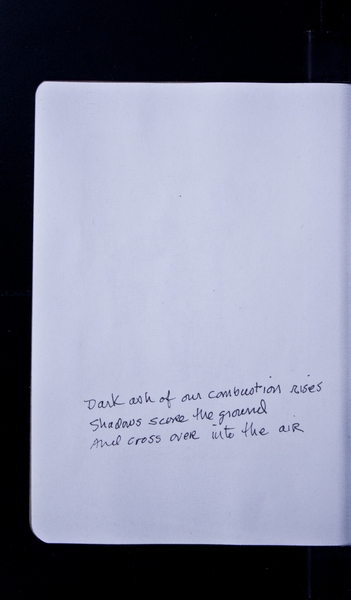 Dark ash of our combustion rises
Shadows score the ground
And cross over into the air